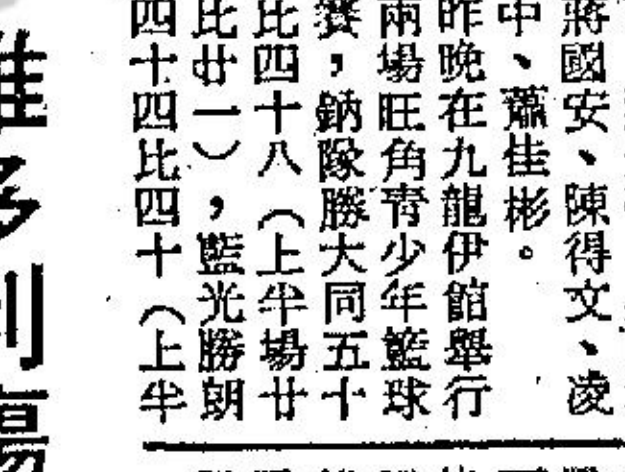 蔣國安、陳得文、凌
中、蕭佳彬。
昨晚在九龍伊館舉行
兩場旺角青少年籃球
賽，鈉隊勝大同五十
比四十八（上半場廿
比廿一），藍光勝朗
四十四比四十（上半